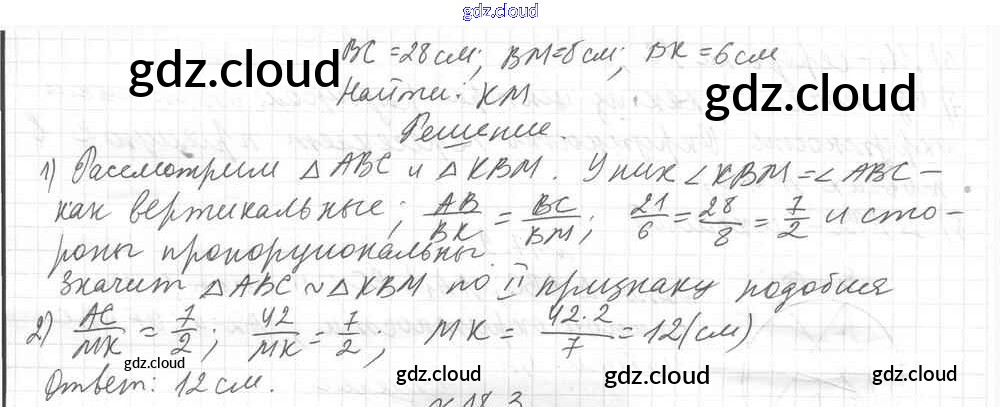 gdz.cloud
BC = 28 см; BM = 8 см; BK = 6 см
gdz.cloud
gdz.cloud
Найти: KM
Решение.
1) Рассмотрим △ ABC и △ KBM. У них ∠ KBM = ∠ ABC –
как вертикальные; AB/BK = BC/BM; 21/6 = 28/8 = 7/2 и сто-
роны пропорциональны.
Значит △ ABC ~ △ KBM по II признаку подобия
2) AC/MK = 7/2; 42/MK = 7/2; MK = 42·2/7 = 12 (см)
Ответ: 12 см.
gdz.cloud
gdz.cloud
gdz.cloud
gdz.cloud